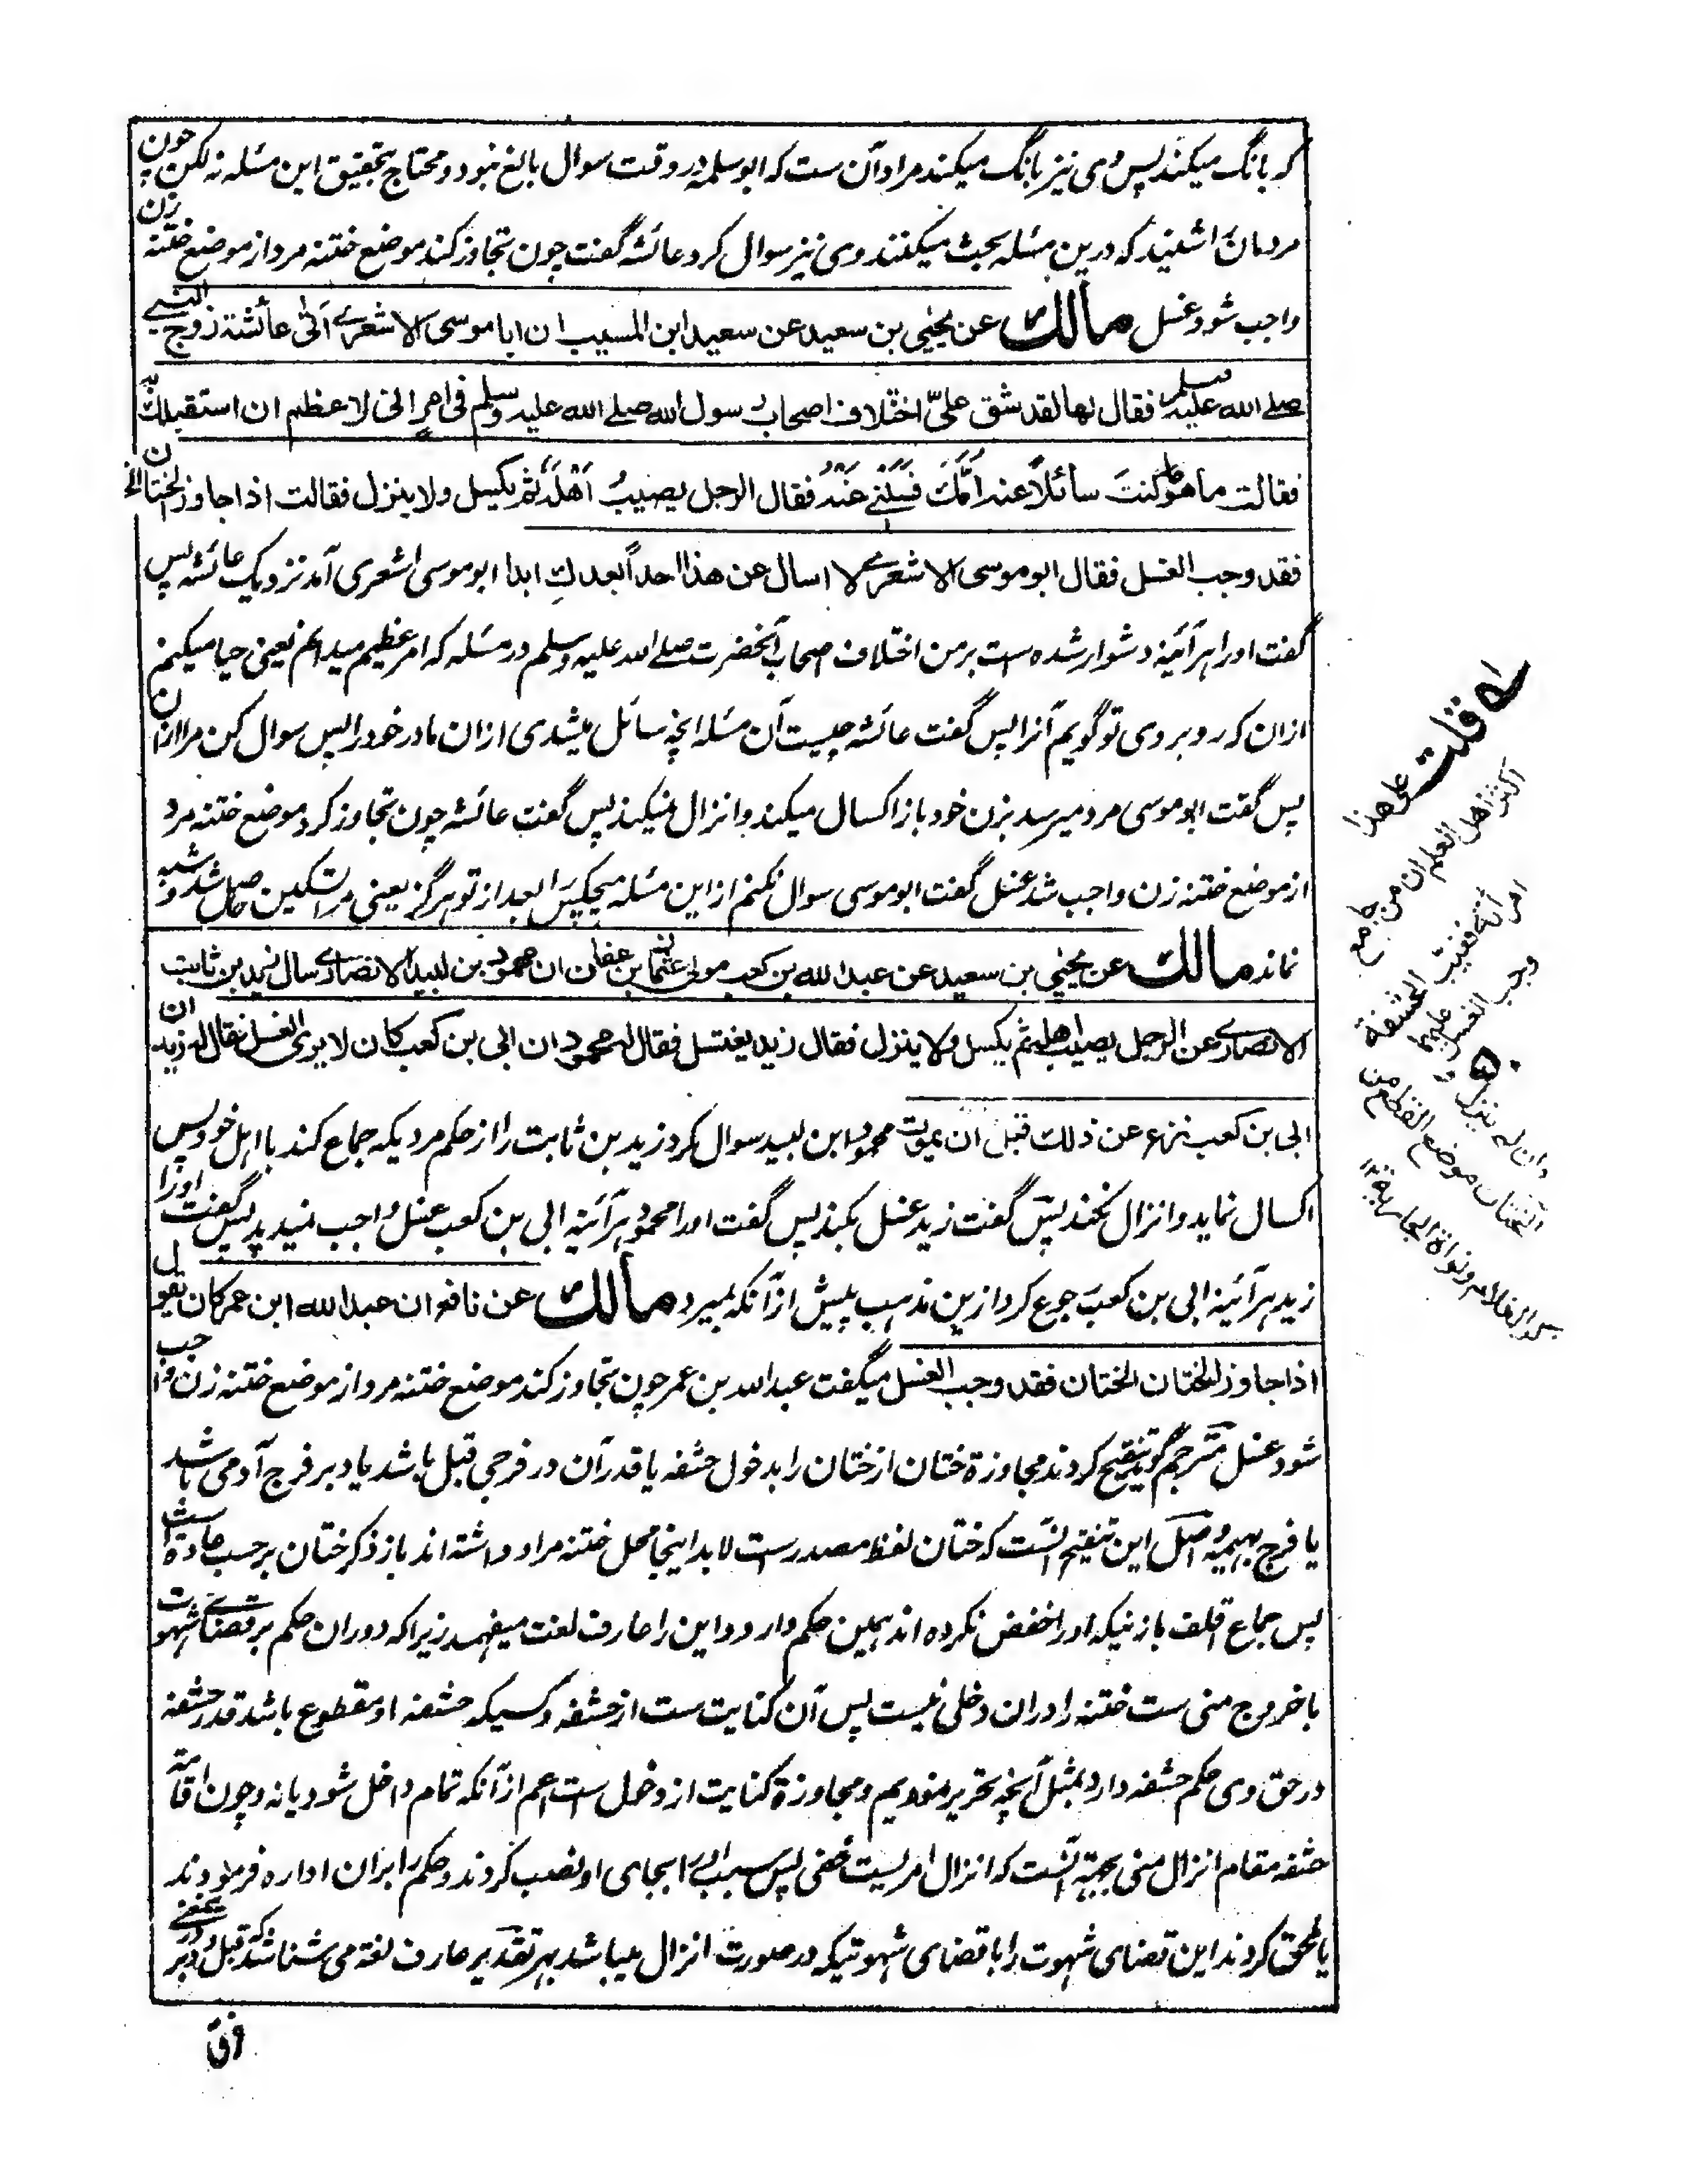 که بانگ میکند پس وی نیز بانگ میکند مراد آن ست که ابوسلمه در وقت سوال بالغ نبود و محتاج بتحقیق این مسئله نه لکن چون
مردمان را شنید که درین مسئله بحث میکنند وی نیز سوال کرد عائشه گفت چون تجاوز کند موضع ختنه مرد از موضع ختنه زن
واجب شود غسل مالك عن يحيى بن سعيد عن سعيد ابن المسيب ان ابا موسى الاشعرے اتى عائشة زوج النبے
صلے الله عليه وسلم فقال لها لقد شق علىّ اختلاف اصحاب رسول الله صلے الله عليه وسلم فى امر انى لاعظم ان استقبلكِ به
فقالت ما هو ما كنتَ سائلاً عنه اُمَّكَ فَسَلْنِے عَنْهُ فقال الرجل يصيبُ اَهْلَهُ ثُمَّ يكسل ولا ينزل فقالت اذا جاوز الختان الخ
فقد وجب الغسل فقال ابو موسى الاشعرے لا اسال عن هذا احداً بعدكِ ابدا ابو موسی اشعری آمد نزدیک عائشه پس
گفت او را هر آئینه دشوار شده ست بر من اختلاف اصحاب آنحضرت صلے الله علیه وسلم در مسئله که امر عظیم میدانم یعنی حیا میکنم
ازان که روبروی تو گویم آنرا پس گفت عائشه چیست آن مسئله انچه سائل میشدی ازان مادر خود را پس سوال کن مرا ازان
پس گفت ابو موسی مرد میرسد بزن خود باز اکسال میکند و انزال نمیکند پس گفت عائشه چون تجاوز کرد موضع ختنه مرد
از موضع ختنه زن واجب شد غسل گفت ابو موسی سوال نکنم از این مسئله هیچکس را بعد از تو هرگز یعنی مرا تسکین حاصل شد و شبه
نماند مالك عن يحيى بن سعيد عن عبد الله بن كعب مولى عثمان بن عفان ان محمود بن لبيد الانصارے سال زيد بن ثابت
الانصارے عن الرجل يصيب اهله ثم يكسل ولا ينزل فقال زيد يغتسل فقال له محمود ان ابى بن كعب كان لا يرى الغسل فقال له زيد ان
ابى بن كعب نزع عن ذلك قبل ان يموت محمود ابن لبید سوال کرد زید بن ثابت را از حکم مردیکه جماع کند با اهل خود پس
اکسال نماید و انزال نکند پس گفت زید غسل بکند پس گفت او را محمود هر آئینه ابی بن کعب غسل واجب نمیدید پس گفت او را
زید هر آئینه ابی بن کعب رجوع کرد ازین مذهب پیش از آنکه بمیرد مالك عن نافع ان عبد الله ابن عمر كان يقول
اذا جاوز الختان الختان فقد وجب الغسل میگفت عبد الله بن عمر چون تجاوز کند موضع ختنه مرد از موضع ختنه زن واجب
شود غسل مترجم گوید تنقیح کردند مجاوزة ختان از ختان را بدخول حشفه یا قدر آن در فرجی قبل باشد یا دبر فرج آدمی باشد
یا فرج بهیمه و اصل این تنقیح آنست که ختان لفظ مصدر ست لابد اینجا محل ختنه مراد داشته اند باز ذکر ختان بر حسب عادة است
پس جماع اقلف با زنیکه او را خفض نکرده اند همین حکم دارد و این را عارف لغت میفهمد زیرا که دوران حکم بر قضاے شهوت
با خروج منی ست ختنه را دران دخلی نیست پس آن کنایت ست از حشفه و کسیکه حشفه او مقطوع باشد قدر حشفه
در حق وی حکم حشفه دارد بمثل آنچه تقریر نمودیم و مجاوزة کنایت از دخول ست اعم از آنکه تمام داخل شود یا نه و چون اقامة
حشفه مقام انزال منی بجهة آنست که انزال امریست خفی پس سبب او را بجای او نصب کردند و حکم را بران اداره فرمودند
یا ملحق کردند این قضای شهوت را با قضای شهوتیکه در صورت انزال میباشد بهر تقدیر عارف لغة می شناسد که قبل و دبر
فرق
له قلت على هذا
اكثر اهل العلم ان من جامع
امرأته فغيب الحشفة
وجب الغسل عليهما
وان لم ينزل و
الختان موضع القطع من
ذكر الغلام ونواة الجارية ١٢